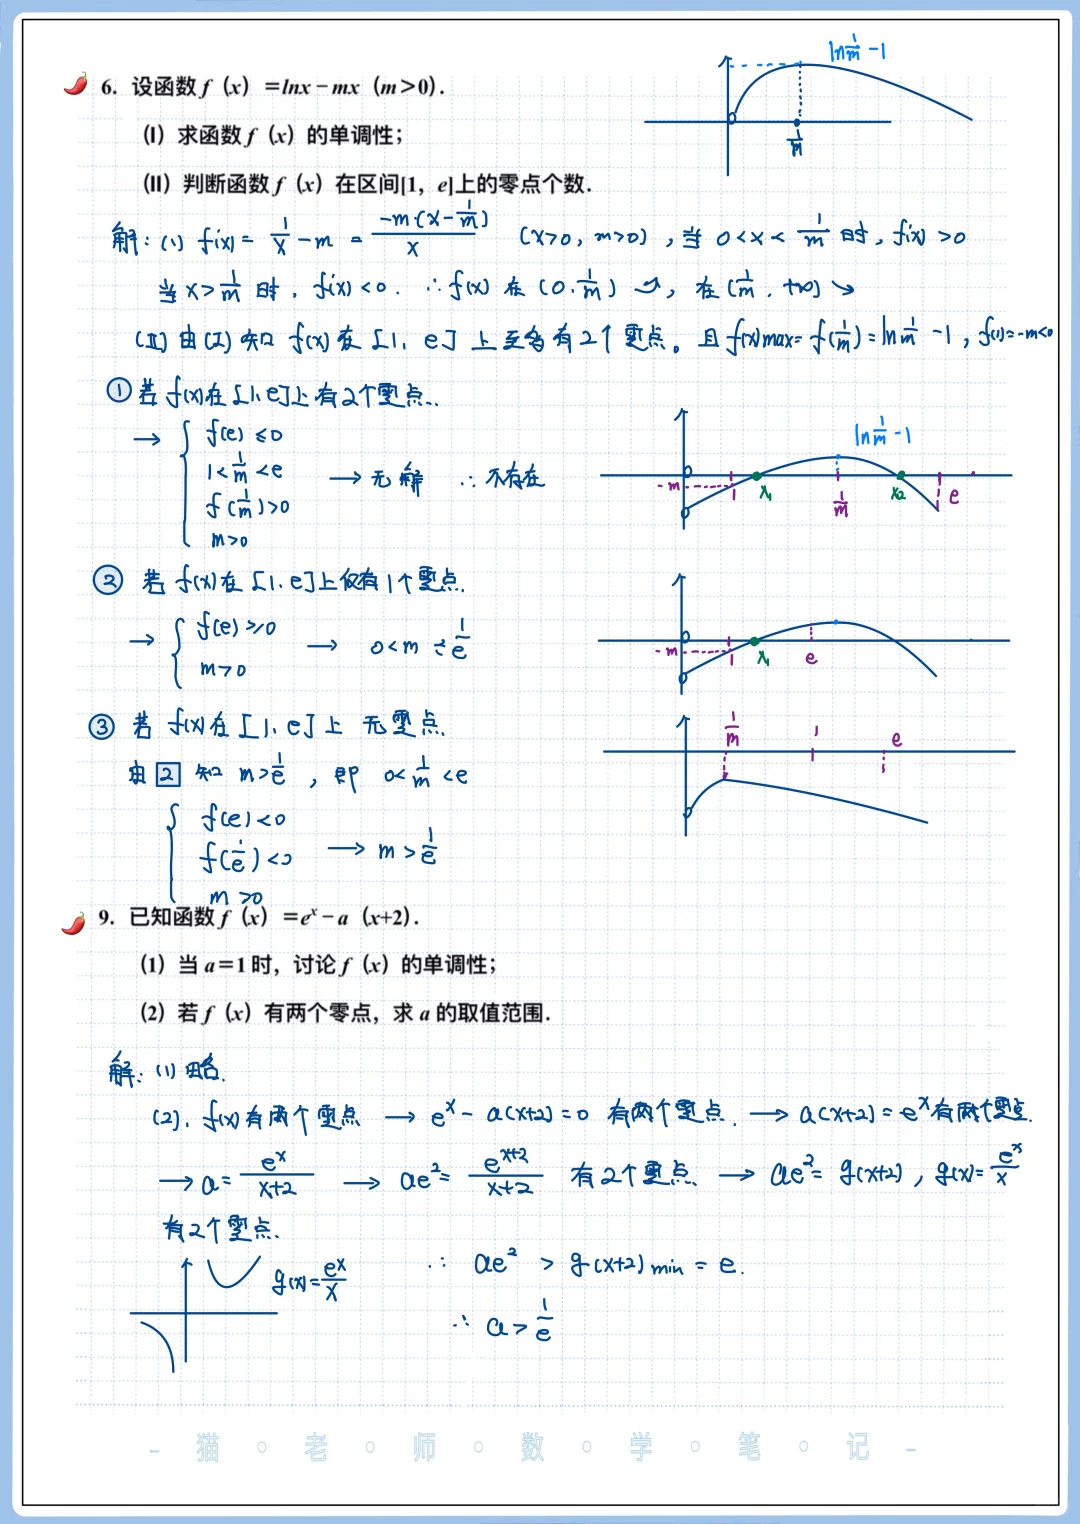 6. 设函数 f（x）=lnx－mx（m＞0）.
（I）求函数 f（x）的单调性；
（II）判断函数 f（x）在区间[1，e]上的零点个数.
ln 1/m -1
1/m
解：(1) f'(x) = 1/x - m = -m(x - 1/m)/x (x>0, m>0)，当 0<x<1/m 时，f'(x) >0
当 x>1/m 时，f'(x) <0. ∴ f(x) 在 (0. 1/m) ↗，在 (1/m. +∞) ↘
(II) 由(I) 知 f(x) 在 [1. e] 上至多有2个零点。且 f(x)max = f(1/m) = ln 1/m -1，f(1)=-m<0
① 若 f(x)在 [1. e]上有2个零点.
→ { f(e) ≤0
1<1/m<e
f(1/m)>0
m>0
→ 无解 ∴ 不存在
ln 1/m -1
-m 1 x₁ 1/m x₂ e
② 若 f(x)在 [1. e]上仅有1个零点.
→ { f(e) ≥0
m>0
→ 0<m≤1/e
-m 1 x₁ e
③ 若 f(x)在 [1. e]上 无零点.
由 2 知 m>1/e，即 0<1/m<e
{ f(e)<0
f(1/e)<0
m>0
→ m>1/e
1/m 1 e
9. 已知函数 f（x）=eˣ－a（x+2）.
（1）当 a=1 时，讨论 f（x）的单调性；
（2）若 f（x）有两个零点，求 a 的取值范围.
解：(1) 略.
(2). f(x)有两个零点 → eˣ - a(x+2)=0 有两个零点. → a(x+2) = eˣ有两个零点.
→ a= eˣ/(x+2) → ae² = e^(x+2)/(x+2) 有2个零点. → ae² = g(x+2)，g(x)= eˣ/x
有2个零点.
g(x)= eˣ/x
∴ ae² > g(x+2)min = e.
∴ a > 1/e
- 猫 · 老 · 师 · 数 · 学 · 笔 · 记 -